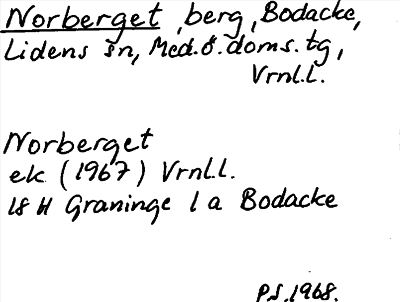 Norberget, berg, Bodacke,
Lidens sn, Med.Ö.doms.tg,
Vrnl.L.
Norberget
ek (1967) Vrnl.l.
18 H Graninge 1 a Bodacke
P.S. 1968.